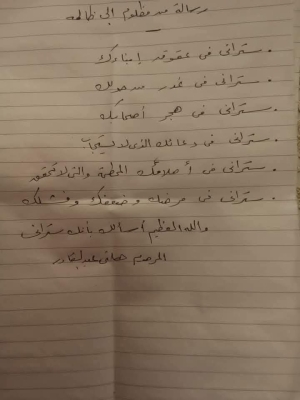 رسالة من مظلوم إلى ظالمه
• ستراني في عقوق إبنائك
• ستراني في غدر من حولك
• ستراني في هجر أصحابك
• ستراني في دعائك الذي لا يستجاب
• ستراني في أحلامك المحطمة والتي لا تتحقق
• ستراني في مرضك وضعفك وفشلك
والله العظيم أسألك بأنك ستراني
المرحوم